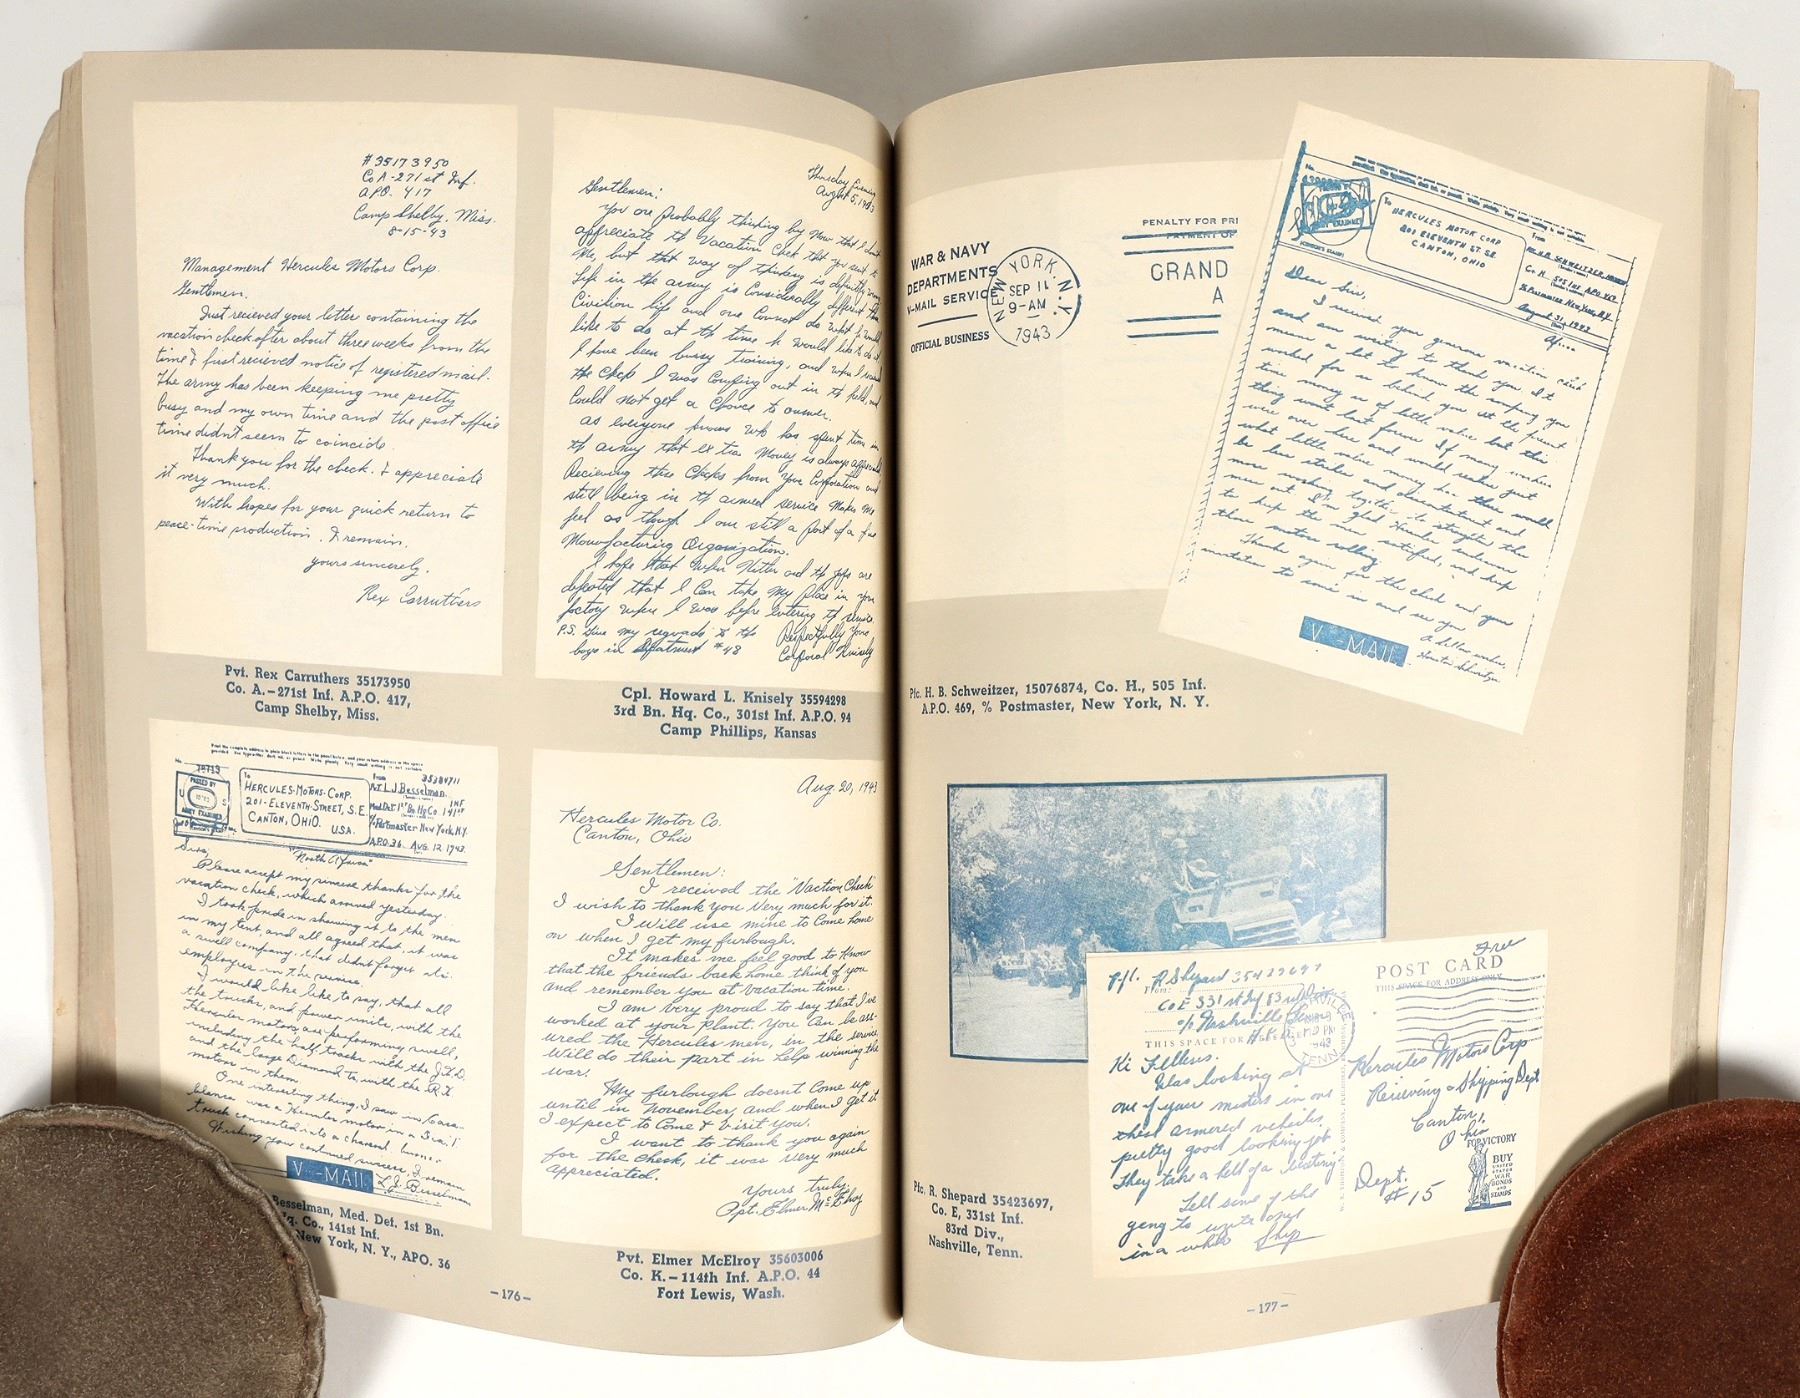 #35173950
Co A-271st Inf.
A.P.O. 417
Camp Shelby, Miss.
8-15-43
Management Hercules Motors Corp.
Gentlemen.
Just recieved your letter containing the
vacation check after about three weeks from the
time I first recieved notice of registered mail.
The army has been keeping me pretty
busy and my own time and the post office
time didn't seem to coincide.
Thank you for the check. I appreciate
it very much.
With hopes for your quick return to
peace-time production. I remain.
yours sincerely.
Rex Carruthers
Pvt. Rex Carruthers 35173950
Co. A.-271st Inf. A.P.O. 417,
Camp Shelby, Miss.
Thursday Evening
August 5, 1943
Gentlemen:
You are probably thinking by now that I don't
appreciate the Vacation Check that you sent to
me, but that way of thinking is definitely wrong
Life in the army is considerably different than
Civilian life and one cannot do what he would
like to do at the time he would like to do it
I have been busy training, and when I received
the check I was camping out in the field, and
could not get a chance to answer.
As everyone knows who has spent time in
the army that extra money is always appreciated
Recieving this check from your Corporation and
still being in the armed service makes me
feel as though I am still a part of a fine
Manufacturing Organization.
I hope that when Hitler and the Japs are
defeated that I can take my place in your
factory where I was before entering the service
P.S. Give my regards to the
boys in Department #48
Respectfully Yours
Corporal Knisely
Cpl. Howard L. Knisely 35594298
3rd Bn. Hq. Co., 301st Inf. A.P.O. 94
Camp Phillips, Kansas
Print the complete address in plain block letters in the panel below, and your return address in the space
provided.
No. 78713
PASSED BY
U S
ARMY EXAMINER
To
HERCULES-MOTORS-CORP.
201-ELEVENTH-STREET, S.E.
CANTON, OHIO.
U.S.A.
From
35384711
Pvt. L J Besselman
Med. Det. 1st Bn Hq Co 141st INF
% Postmaster New York, N.Y.
A.P.O. 36 AUG. 12 1943.
"North Africa"
Sirs;
Please accept my sincere thanks for the
vacation check, which arrived yesterday.
I took pride in showing it to the men
in my tent, and all agreed that, it was
a swell company, that didn't forget its
employees in the service.
I would like like to say, that all
the trucks, and power units, with the
Hercules motors, are performing swell,
including the half tracks with the
and the large Diamond T's with the RX
motor in them.
One interesting thing, I saw in Casa-
blanca was a Hercules motor in a
truck converted into a charcoal burner
Wishing your continued success, I remain
L.J. Besselman
V-MAIL
Besselman, Med. Det. 1st Bn.
Hq. Co., 141st Inf.
New York, N. Y., APO. 36
Aug. 20, 1943
Hercules Motor Co.
Canton, Ohio
Gentlemen:
I received the "Vaction Check"
I wish to thank you very much for it.
I will use mine to come home
on when I get my furlough.
It makes me feel good to know
that the friends back home think of you
and remember you at vacation time.
I am very proud to say that I've
worked at your plant. You can be ass-
ured the Hercules men, in the service,
will do their part in help winning the
war.
My furlough doesn't come up
until in November, and when I get it
I expect to come & visit you.
I want to thank you again
for the check, it was very much
appreciated.
Yours truly,
Pvt. Elmer McElroy
Pvt. Elmer McElroy 35603006
Co. K.-114th Inf. A.P.O. 44
Fort Lewis, Wash.
-176-
WAR & NAVY
DEPARTMENTS
V-MAIL SERVICE
OFFICIAL BUSINESS
NEW YORK, N.Y.
SEP 11
9-AM
1943
PENALTY FOR PRI
PAYMENT OF
GRAND
A
To
HERCULES MOTOR CORP
201 ELEVENTH ST. SE
CANTON, OHIO
From
Pfc. H.B. SCHWEITZER
Co. H. 505 Inf. APO 469
% Postmaster New York, N.Y.
August 31, 1943
Dear Sir,
I received your generous vacation check
and am writing to thank you. It
means a lot to know the company you
worked for is behind you. At the present
time money is of little value but this
thing wont last forever. If many
were over here and would realize just
what little value money has there would
be less strikes and discontentment and
more working together to straighten the
mess out. I'm glad Hercules
to keep the men satisfied, and keep
those motors rolling.
Thanks again for the check and your
invitation to come in and see you
A fellow worker,
V-MAIL
Pfc. H. B. Schweitzer, 15076874, Co. H., 505 Inf.
A.P.O. 469, % Postmaster, New York, N. Y.
Pfc. R Shepard 35423697
From:
Co E 331st Inf 83rd Div
% Nashville Tenn
THIS SPACE FOR
NASHVILLE
1943
TENN
Free
POST CARD
THIS SPACE FOR ADDRESS ONLY
Hi Fellers.
Was looking at
one of your motors in one
these armored vehicles,
pretty good looking job
They take a hell of a beating
Tell some of the
gang to write once
in a while Shep
Hercules Motors Corp
Recieving & Shipping Dept
Canton,
Ohio
Dept.
#15
FOR VICTORY
BUY
UNITED
STATES
WAR
BONDS
AND
STAMPS
Pfc. R. Shepard 35423697,
Co. E, 331st Inf.
83rd Div.,
Nashville, Tenn.
-177-